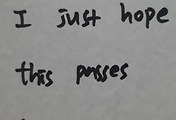 I just hope
this passes